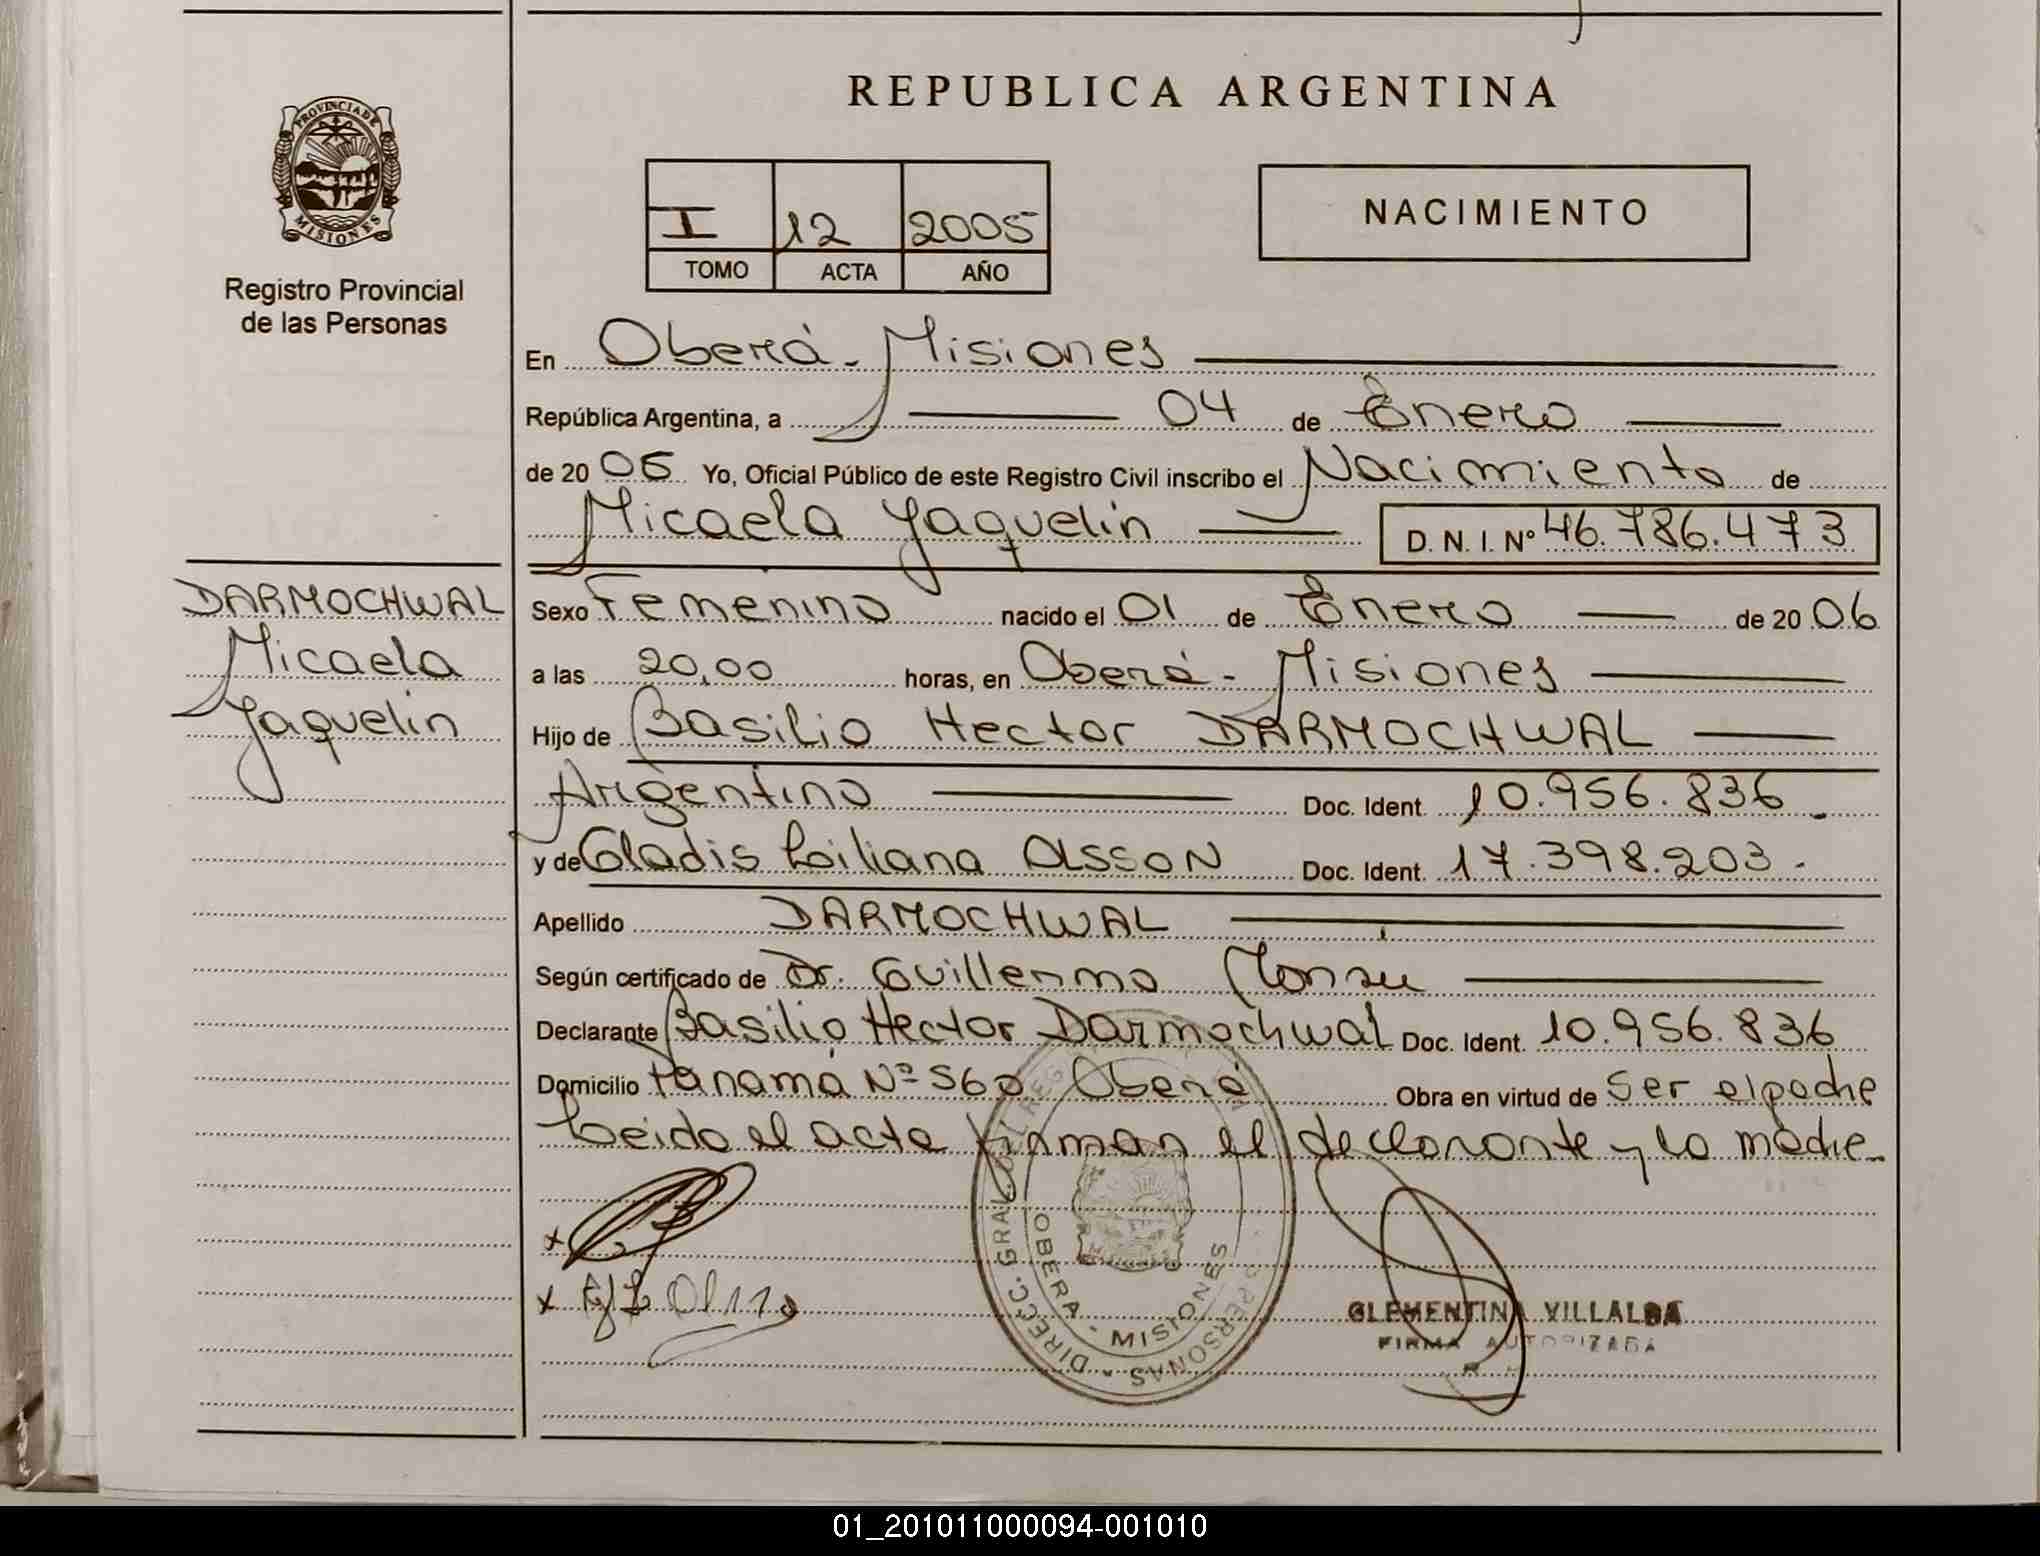 REPUBLICA ARGENTINA
PROVINCIA DE
MISIONES
Registro Provincial
de las Personas
I 12 2005
TOMO ACTA AÑO
NACIMIENTO
En Oberá - Misiones
República Argentina, a 04 de Enero
de 2006 Yo, Oficial Público de este Registro Civil inscribo el Nacimiento de
Micaela Yaquelin D. N. I. Nº 46.786.473
DARMOCHWAL
Micaela
Yaquelin
Sexo Femenino nacido el 01 de Enero de 2006
a las 20,00 horas, en Oberá - Misiones
Hijo de Basilio Hector DARMOCHWAL
Argentino Doc. Ident. 10.956.836
y de Gladis Liliana OLSSON Doc. Ident. 17.398.203.
Apellido DARMOCHWAL
Según certificado de Dr. Guillermo
Declarante Basilio Hector Darmochwal Doc. Ident. 10.956.836
Domicilio Panamá Nº 560 Oberá Obra en virtud de ser el padre
Leida el acta firman el declarante y la madre
DIRECC. GRAL. DEL REG PERSONAS
OBERA - MISIONES
CLEMENTINA VILLALBA
FIRMA AUTORIZADA
01_201011000094-001010